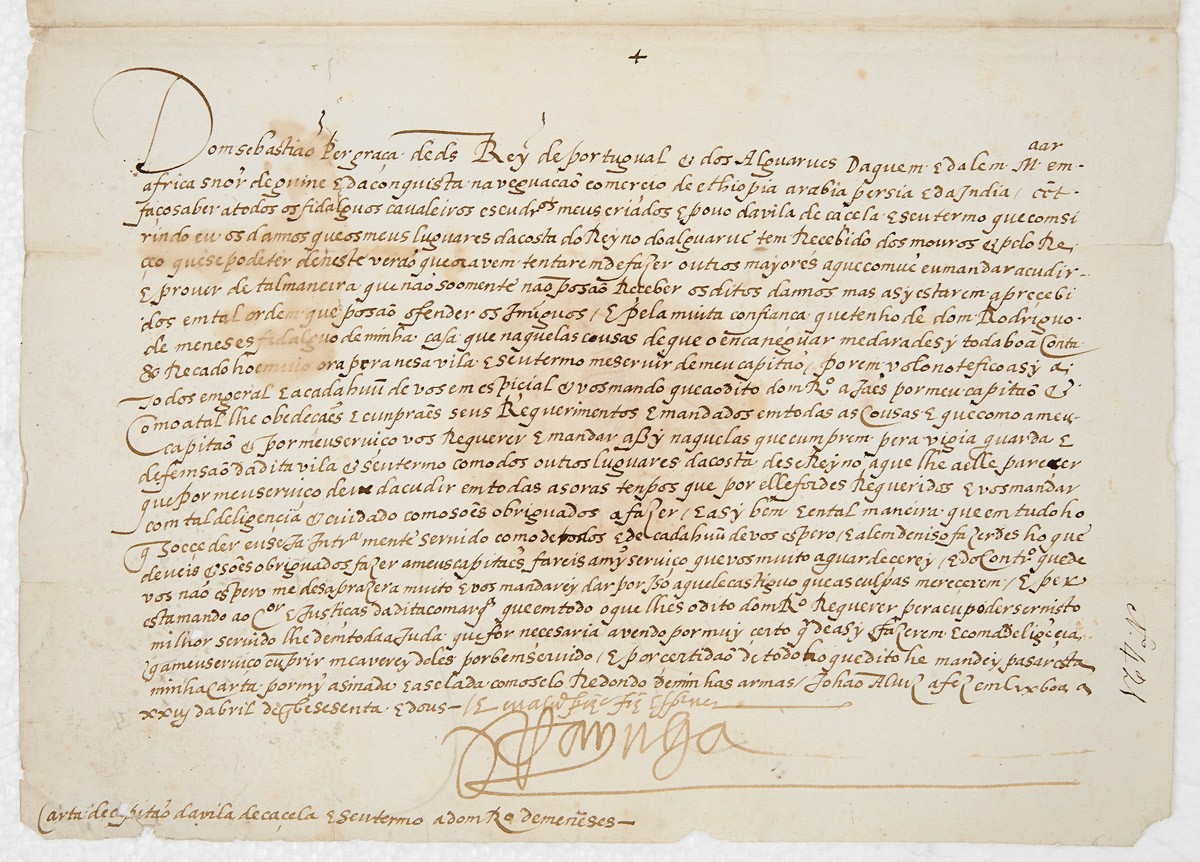 +
Dom sebastiaõ per graça de ds Rey de portugual & dos Alguarves Daquem E dalem Mar em
africa snõr de guine E da conquista naveguacaõ comercio de ethiopia arabia persia E da India / cet
faço saber a todos os fidalguos cavaleiros escudros meus criados E povo da vila de cacela E seu termo que comsi
rindo eu os damos que os meus luguares da costa do Reyno do alguarve tem Recebido dos mouros & pelo Re
çeo que se pode ter de neste veraõ que ora vem tentarem de fazer outros mayores a que comve eu mandar acudir
E prover de tal maneira que não soomente não posaõ Receber os ditos dannos mas asy estarem aprecebi
dos em tal ordem que posaõ ofender os Inmiguos / E pela muita confiança que tenho de dom Rodriguo
de meneses fidalguo de minha casa que naquelas cousas de que o encareguar me dara de sy toda boa Conta
& Recado ho emvio ora pera nesa vila E seu termo me servir de meu capitaõ / porem volo notefico asy a
Todos em geral E a cada huũ de vos em espicial & vos mando que ao dito dom Ro ajaes por meu capitaõ &
Como a tal lhe obedecaes E cunpraes seus Requerimentos E mandados em todas as Cousas E que como a meu
capitaõ & por meu serviço vos Requerer E mandar aßy naquelas que cumprem pera vigia guarda E
defensaõ da dita vila & seu termo como dos outros luguares da costa dese Reyno a que lhe a elle parecer
que por meu serviço deve dacudir em todas as oras tenpos que por elle fordes Requeridos E vos mandar
com tal deligencia & cuidado como soes obriguados a fazer / E asy bem E en tal maneira que em tudo ho
q soceder eu seJa Intramente servido como de todos E de cada huũ de vos espero / E alem deniso fazerdes ho que
deveis & soes obriguados fazer a meus capitaes fareis a my serviço que vos muito aguardecerey / E do Contro que de
vos não espero me desaprazera muito E vos mandarey dar por iso aquele castiguo que as culpas merecerem / E per
esta mando ao Cor E Justicas da dita comarqa que em todo o que lhes o dito dom Ro Requerer pera eu poder ser nisto
milhor servido lhe dem toda aJuda que for necesaria avendo por muy certo q de asy fazerem E com a deligecia
q a meu serviço cumprir me averey deles por bem servido / E por certidaõ de todo ho que dito he mandey pasar esta
minha carta por my asinada E aselada com o selo Redondo de minhas armas / Johaõ Alvrz a fez em lixboa a
xxvj dabril de jbc sesenta E dous
Raynha
Carta de capitaõ da vila de caçela E seu termo a dom Ro de meneses